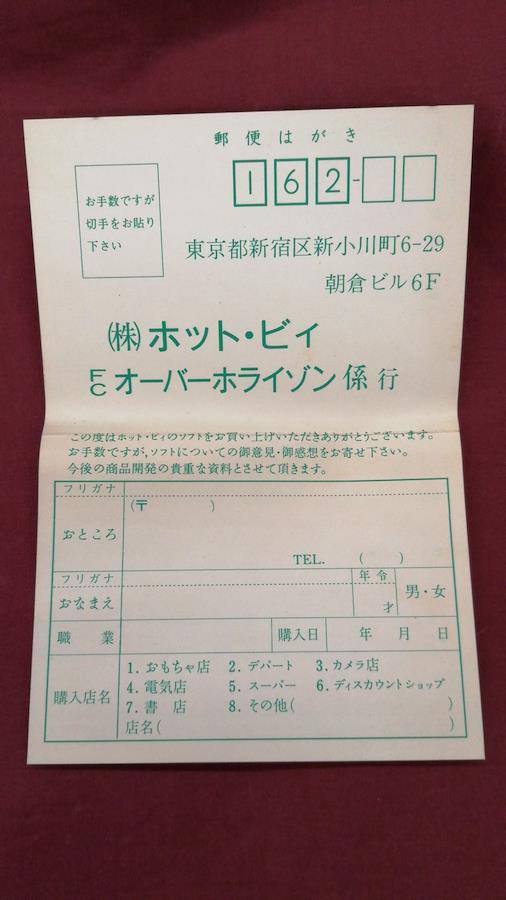 郵便はがき
162-
お手数ですが
切手をお貼り
下さい
東京都新宿区新小川町6-29
朝倉ビル6F
(株)ホット・ビィ
FC オーバーホライゾン 係 行
この度はホット・ビィのソフトをお買い上げいただきありがとうございます。
お手数ですが、ソフトについての御意見・御感想をお寄せ下さい。
今後の商品開発の貴重な資料とさせて頂きます。
フリガナ
おところ (〒 )
TEL. ( )
フリガナ 年令
おなまえ 才 男・女
職業 購入日 年 月 日
購入店名
1. おもちゃ店 2. デパート 3. カメラ店
4. 電気店 5. スーパー 6. ディスカウントショップ
7. 書店 8. その他( )
店名( )